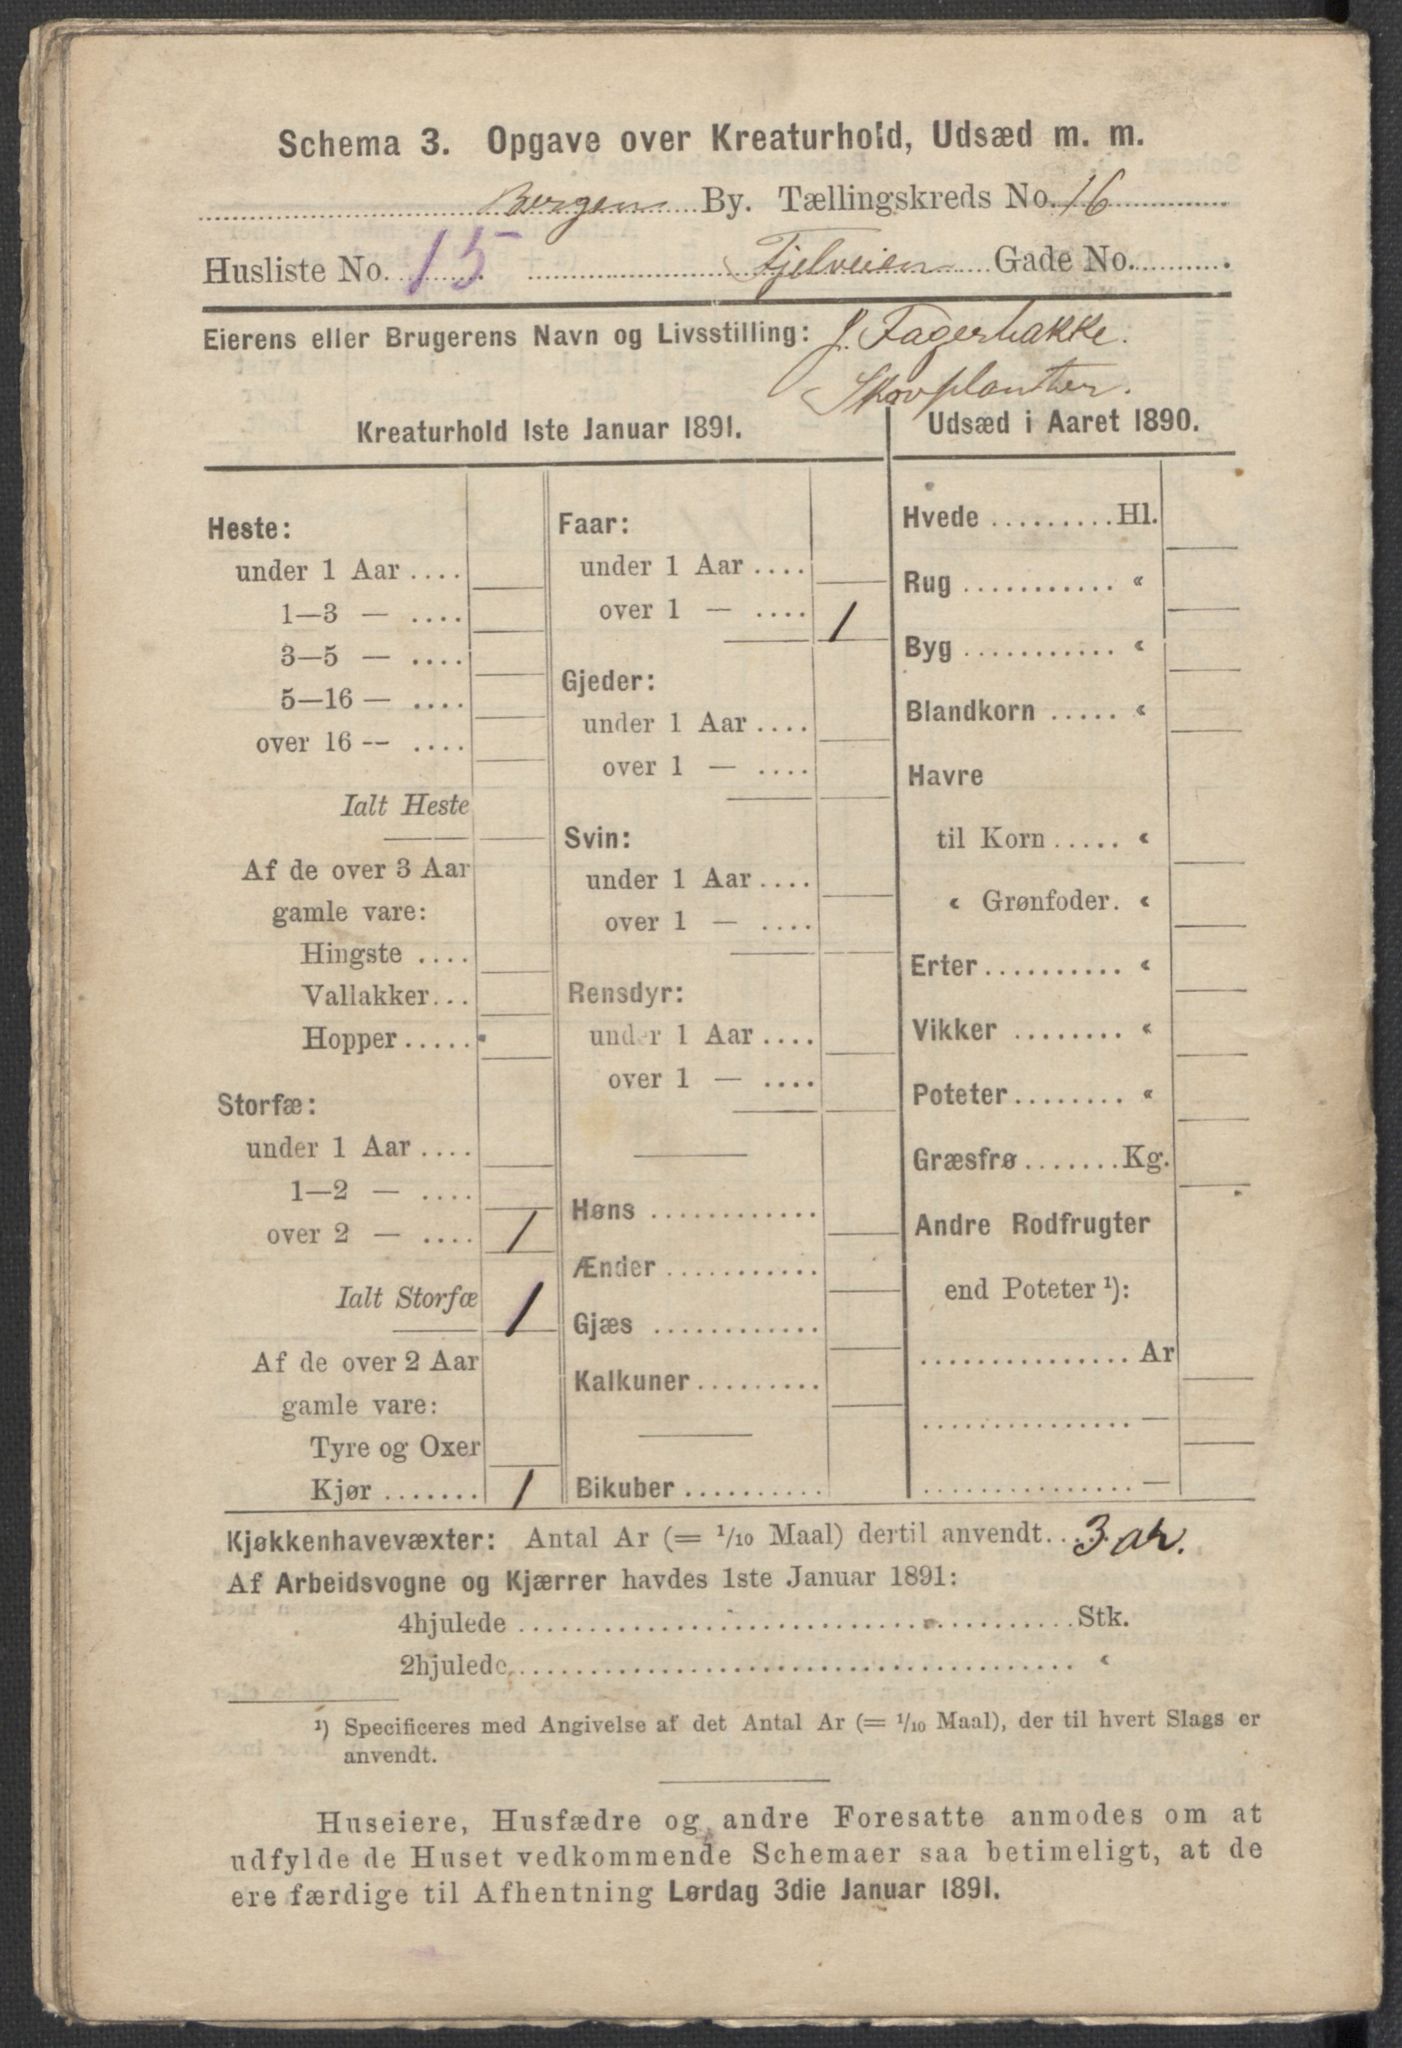 Schema 3. Opgave over Kreaturhold, Udsæd m. m.
Bergen By. Tællingskreds No. 16
Husliste No. 15 Fjelveien Gade No.
Eierens eller Brugerens Navn og Livsstilling: J. Fagerbakke.
Skovplanter.
Kreaturhold 1ste Januar 1891.
Heste:
under 1 Aar ....
1—3 — ....
3—5 — ....
5—16 — ....
over 16 — ....
Ialt Heste
Af de over 3 Aar
gamle vare:
Hingste ....
Vallakker...
Hopper .....
Storfæ:
under 1 Aar ....
1—2 — ....
over 2 — .... 1
Ialt Storfæ 1
Af de over 2 Aar
gamle vare:
Tyre og Oxer
Kjør ....... 1
Faar:
under 1 Aar ....
over 1 — .... 1
Gjeder:
under 1 Aar ....
over 1 — ....
Svin:
under 1 Aar ....
over 1 — ....
Rensdyr:
under 1 Aar ....
over 1 — ....
Høns ............
Ænder ...........
Gjæs ............
Kalkuner .........
Bikuber ..........
Udsæd i Aaret 1890.
Hvede ......... Hl.
Rug ........... «
Byg ........... «
Blandkorn ..... «
Havre
til Korn ..... «
« Grønfoder. «
Erter .......... «
Vikker ........ «
Poteter ........ «
Græsfrø ....... Kg.
Andre Rodfrugter
end Poteter ¹):
............... Ar
............... —
............... —
Kjøkkenhavevæxter: Antal Ar (= 1/10 Maal) dertil anvendt.. 3 ar.
Af Arbeidsvogne og Kjærrer havdes 1ste Januar 1891:
4hjulede ........................................ Stk.
2hjulede ........................................ «
¹) Specificeres med Angivelse af det Antal Ar (= 1/10 Maal), der til hvert Slags er
anvendt.
Huseiere, Husfædre og andre Foresatte anmodes om at
udfylde de Huset vedkommende Schemaer saa betimeligt, at de
ere færdige til Afhentning Lørdag 3die Januar 1891.